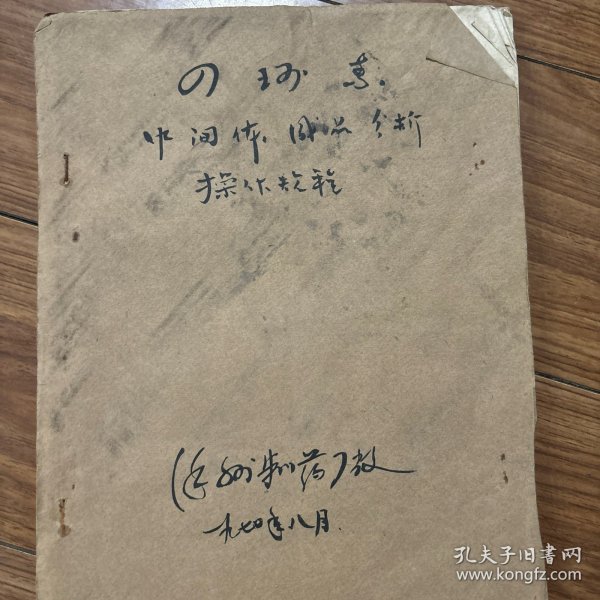 四环素
中间体、成品分析
操作规程
徐州制药厂
一九七四年八月.
孔夫子旧书网
www.kongfz.com